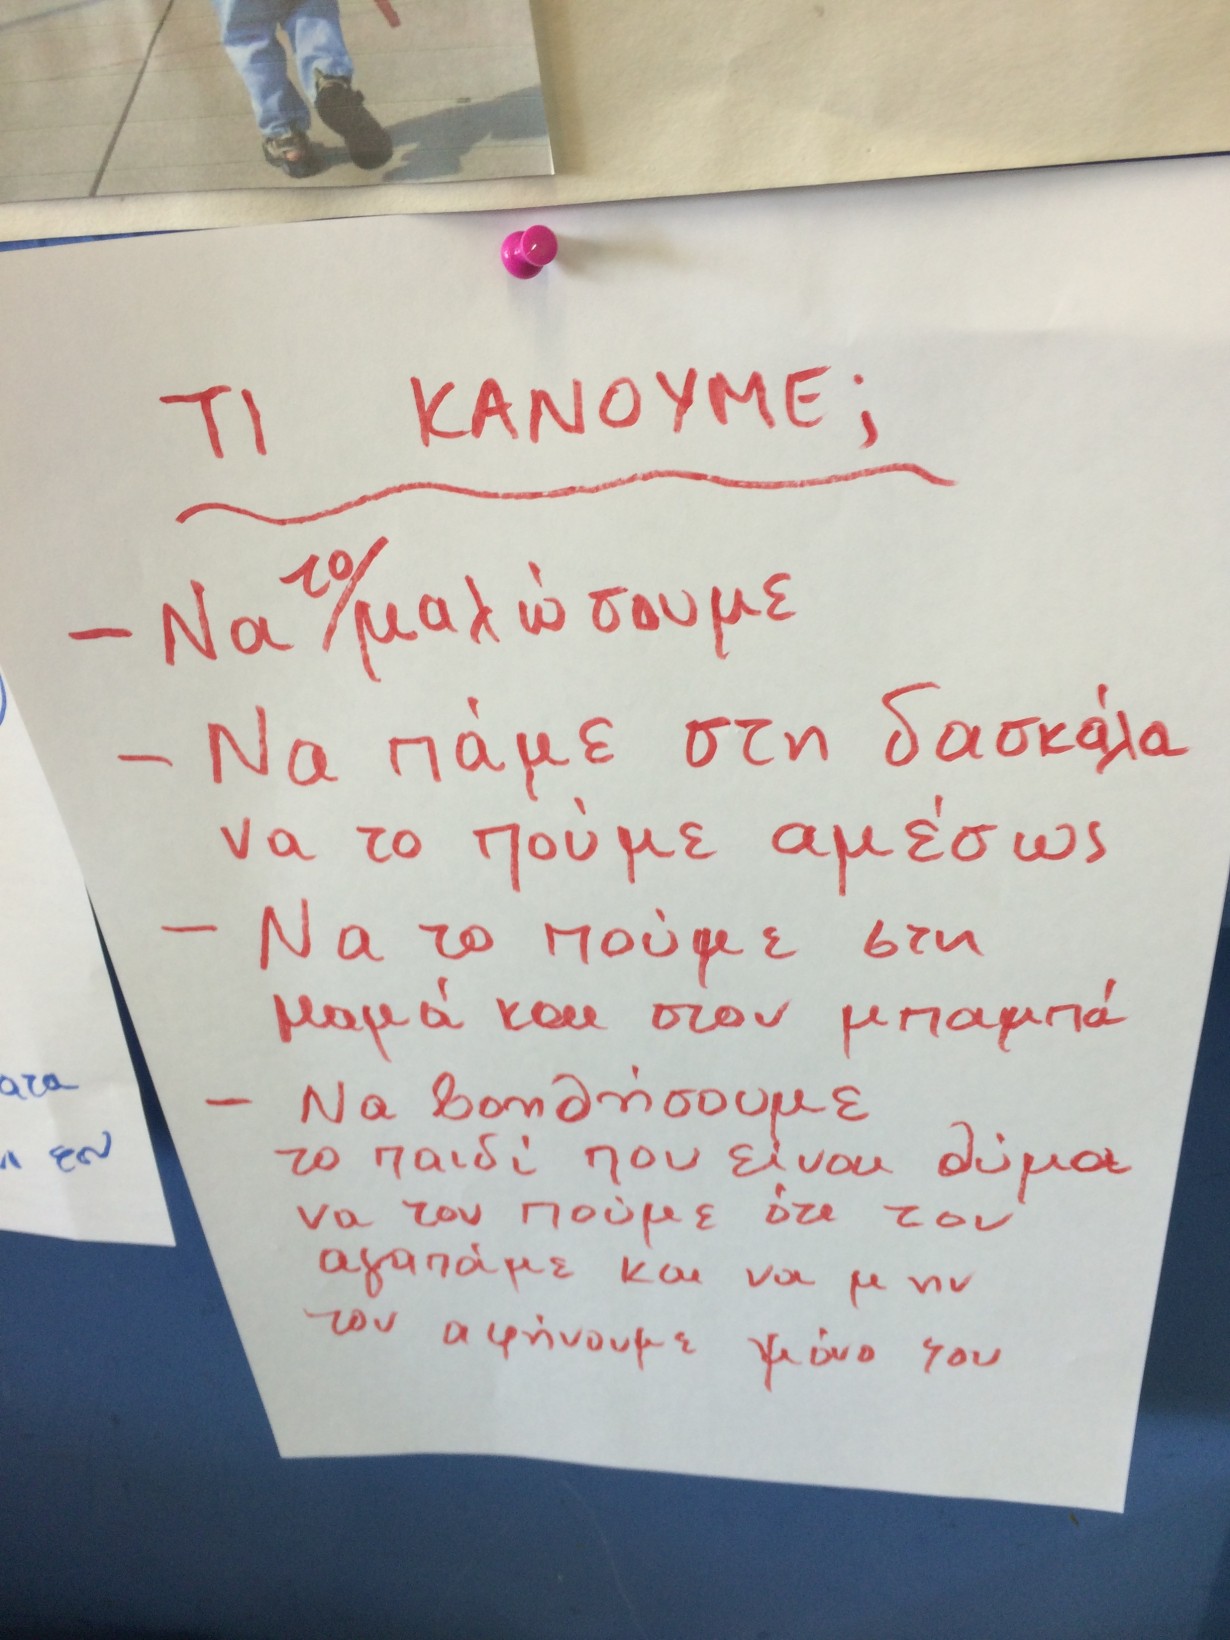 ΤΙ ΚΑΝΟΥΜΕ;
- Να το/μαλώσουμε
- Να πάμε στη δασκάλα
να το πούμε αμέσως
- Να το πούμε στη
μαμά και στον μπαμπά
- Να βοηθήσουμε
το παιδί που είναι θύμα
να του πούμε ότι τον
αγαπάμε και να μην
τον αφήνουμε μόνο του
ατα